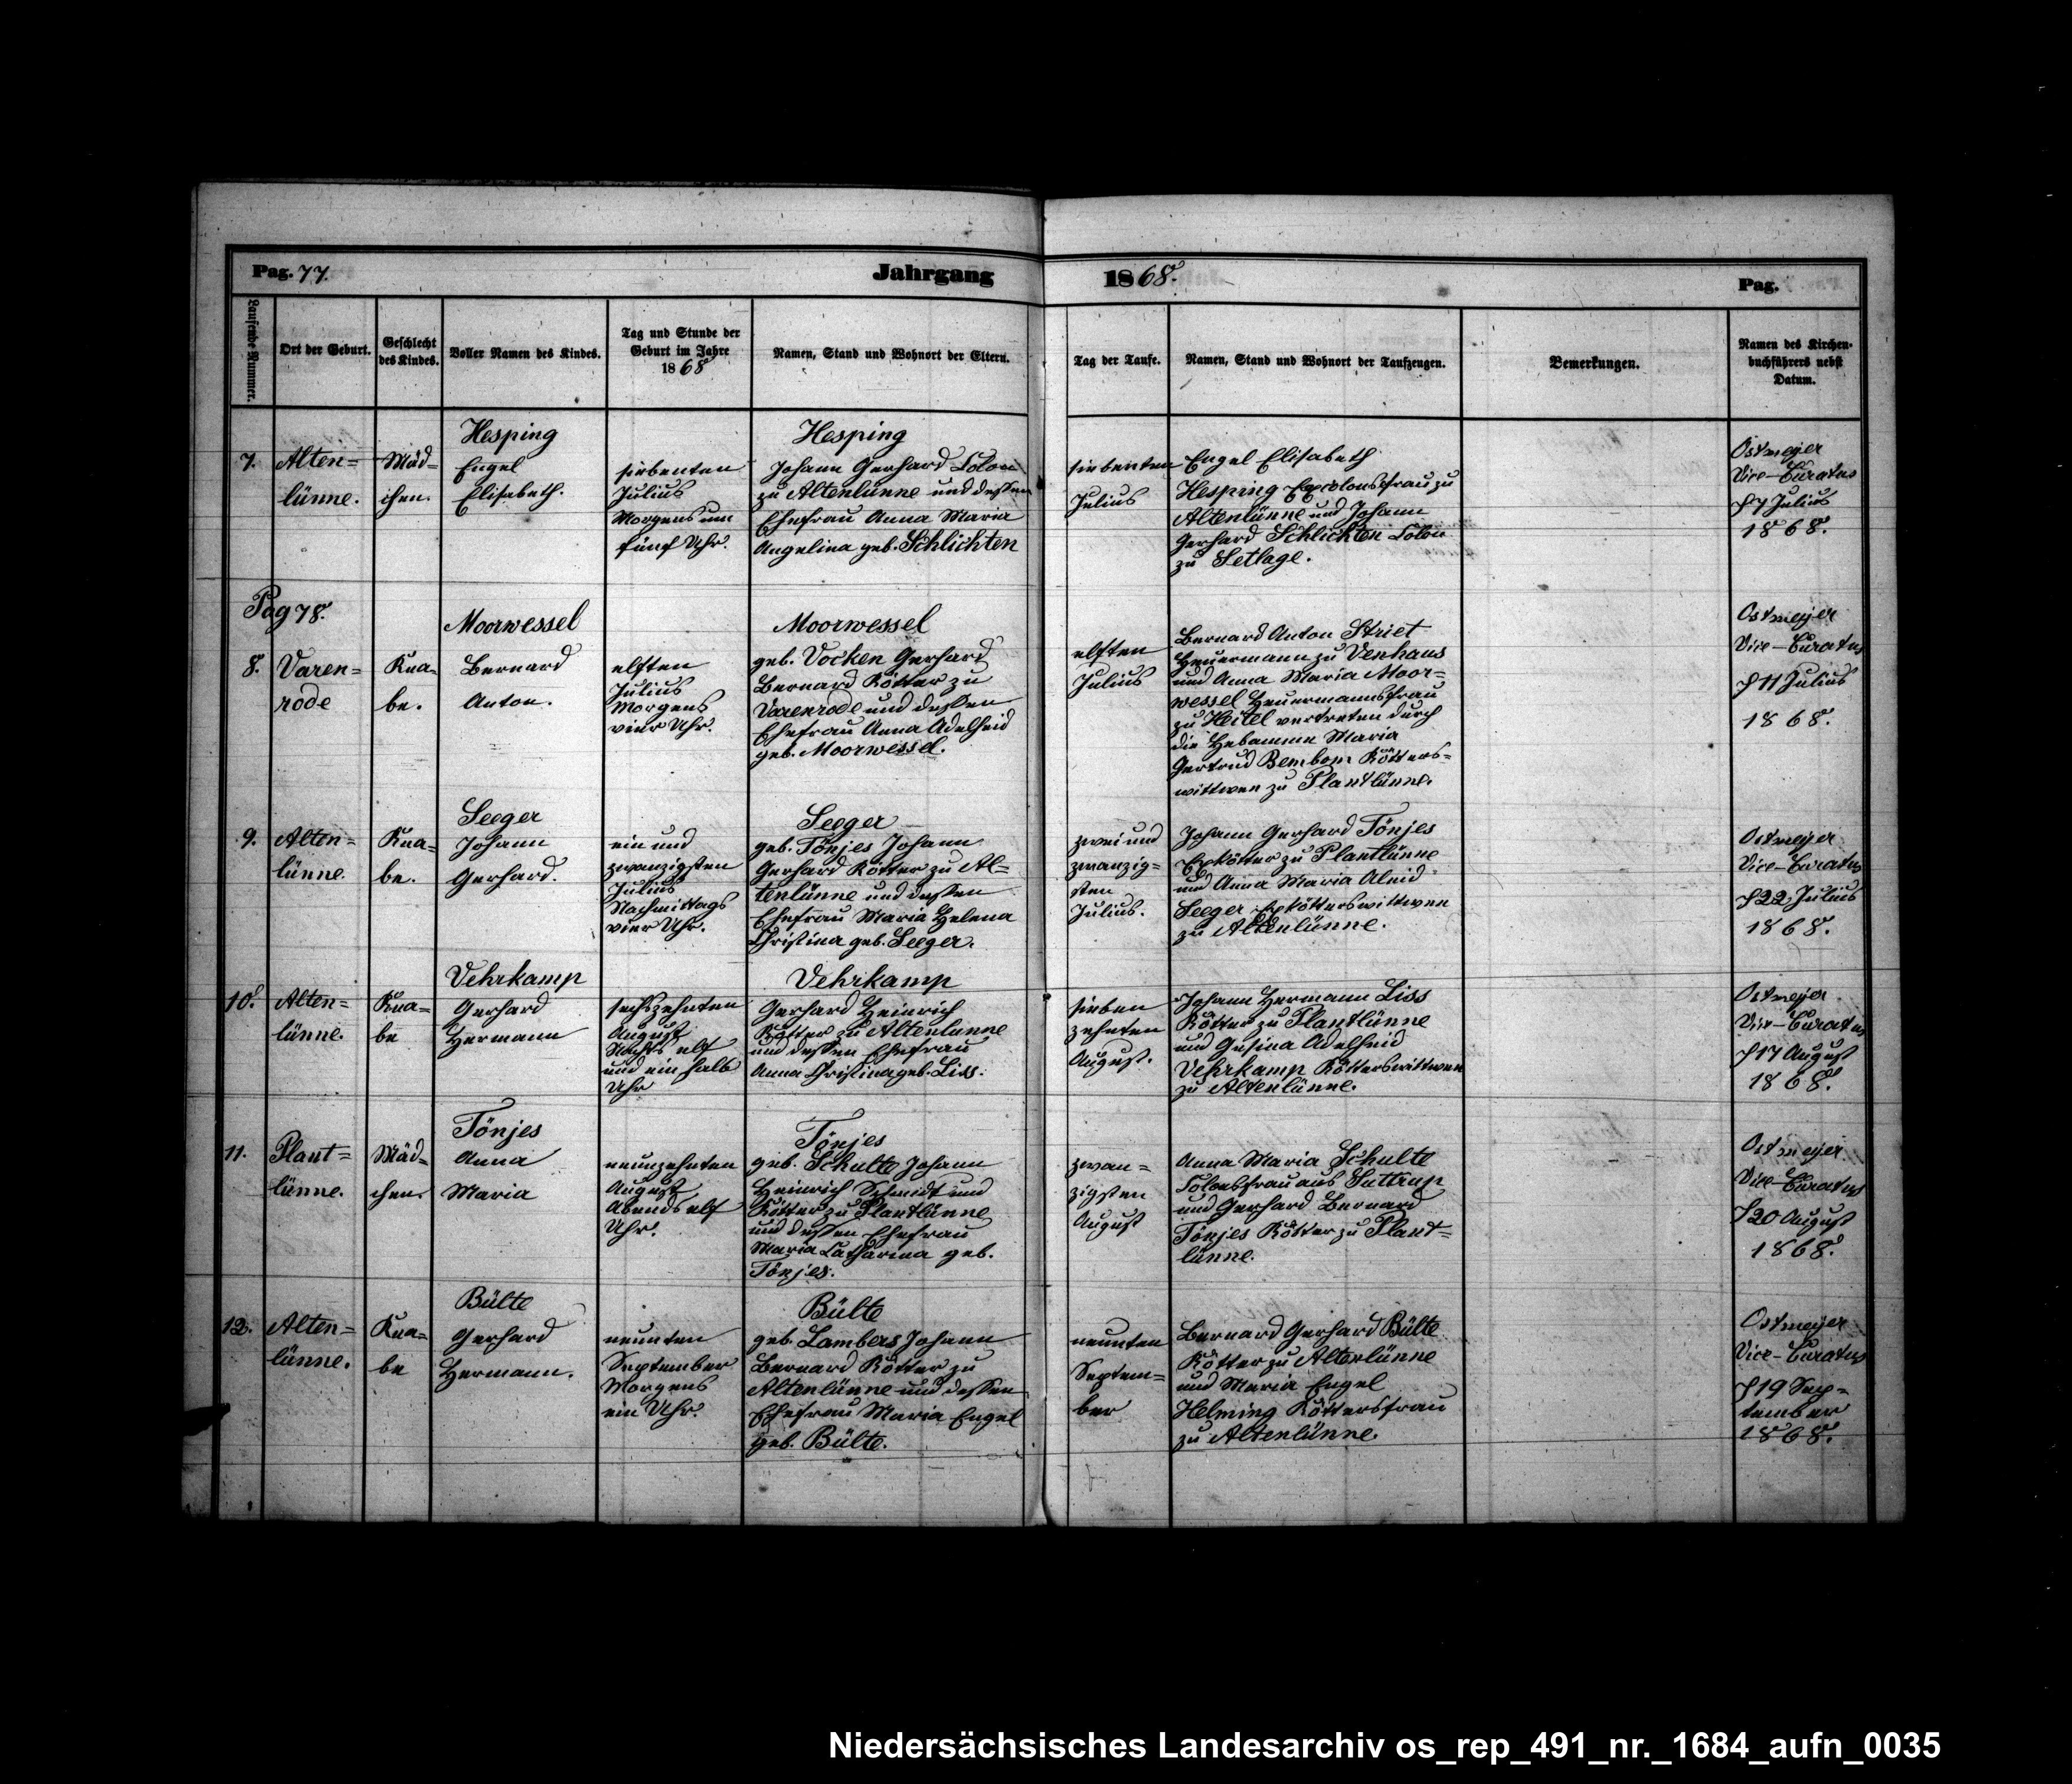 Pag. 77.
Jahrgang
1868.
Pag.
Laufende Nummer.
Ort der Geburt.
Geschlecht
des Kindes.
Voller Namen des Kindes.
Tag und Stunde der
Geburt im Jahre
1868
Namen, Stand und Wohnort der Eltern.
Tag der Taufe.
Namen, Stand und Wohnort der Taufzeugen.
Bemerkungen.
Namen des Kirchen-
buchführers nebst
Datum.
7.
Alten=
lünne.
Mäd=
chen.
Hesping
Engel
Elisabeth.
siebenten
Julius
Morgens um
fünf Uhr.
Hesping
Johann Gerhard Colon
zu Altenlünne und dessen
Ehefrau Anna Maria
Angelina geb. Schlichten
siebenten
Julius
Engel Elisabeth
Hesping Excolonsfrau zu
Altenlünne und Johann
Gerhard Schlichten Colon
zu Setlage.
Ostmeyer
Vice-Curatus
17 Julius
1868.
Pag 78.
8.
Varen=
rode
Kna=
be.
Moorwessel
Bernard
Anton.
elften
Julius
Morgens
vier Uhr.
Moorwessel
geb. Vocken Gerhard
Bernard Kötter zu
Varenrode und dessen
Ehefrau Anna Adelheid
geb. Moorwessel.
elften
Julius
Bernard Anton Striet
Heuermann zu Venhaus
und Anna Maria Moor=
wessel Heuermannsfrau
zu Heitel vertreten durch
die Hebamme Maria
Gertrud Bembom Kötters=
wittwen zu Plantlünne.
Ostmeyer
Vice-Curatus
11 Julius
1868.
9.
Alten=
lünne.
Kna=
be.
Seeger
Johann
Gerhard.
ein und
zwanzigsten
Julius
Nachmittags
vier Uhr.
Seeger
geb. Tönjes Johann
Gerhard Kötter zu Al=
tenlünne und dessen
Ehefrau Maria Helena
Christina geb. Seeger.
zwei und
zwanzig=
sten
Julius.
Johann Gerhard Tönjes
Exkötter zu Plantlünne
und Anna Maria Aleid
Seeger Exkötterswittwen
zu Altenlünne.
Ostmeyer
Vice-Curatus
22 Julius
1868.
10.
Alten=
lünne.
Kna=
be
Vehrkamp
Gerhard
Hermann
sechszehnten
August
Nachts elf
und ein halb
Uhr
Vehrkamp
Gerhard Heinrich
Kötter zu Altenlünne
und dessen Ehefrau
Anna Christina geb. Liss.
sieben
zehnten
August.
Johann Hermann Liss
Kötter zu Plantlünne
und Gesina Adelheid
Vehrkamp Kötterswittwen
zu Altenlünne.
Ostmeyer
Vice-Curatus
17 August
1868.
11.
Plant=
lünne.
Mäd=
chen.
Tönjes
Anna
Maria
neunzehnten
August
Abends elf
Uhr.
Tönjes
geb. Schulte Johann
Heinrich Schmidt und
Kötter zu Plantlünne
und dessen Ehefrau
Maria Catharina geb.
Tönjes.
zwan=
zigsten
August
Anna Maria Schulte
Colonsfrau aus Suttrup
und Gerhard Bernard
Tönjes Kötter zu Plant=
lünne.
Ostmeyer
Vice-Curatus
20 August
1868.
12.
Alten=
lünne.
Kna=
be
Bülte
Gerhard
Hermann.
neunten
September
Morgens
ein Uhr.
Bülte
geb. Lambers Johann
Bernard Kötter zu
Altenlünne und dessen
Ehefrau Maria Engel
geb. Bülte.
neunten
Septem=
ber
Bernard Gerhard Bülte
Kötter zu Altenlünne
und Maria Engel
Helming Köttersfrau
zu Altenlünne.
Ostmeyer
Vice-Curatus
19 Sep=
tember
1868.
Niedersächsisches Landesarchiv os_rep_491_nr._1684_aufn_0035